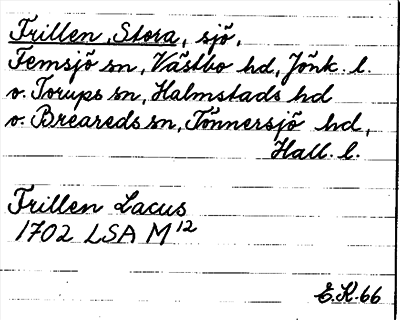 Trillen, Stora, sjö,
Femsjö sn, Västbo hd, Jönk. l.
o. Torups sn, Halmstads hd
o. Breareds sn, Tönnersjö hd,
Hall. l.
Trillen Lacus
1702 LSA M12
E.K. 66